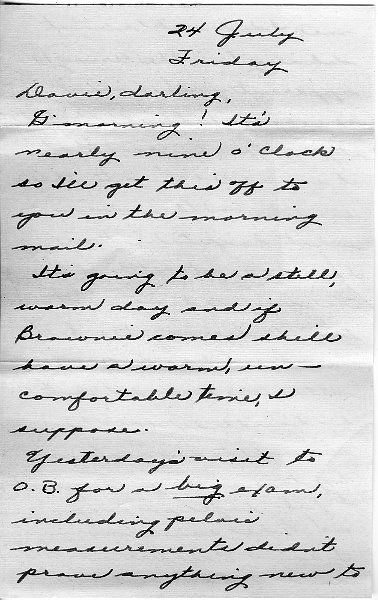 24 July
Friday
Davie, darling,
G'morning! It's
nearly nine o'clock
so I'll get this off to
you in the morning
mail.
It's going to be a still,
warm day and if
Brownie comes she'll
have a warm, un-
comfortable time, I
suppose.
Yesterday's visit to
O.B. for a big exam,
including pelvic
measurements didn't
prove anything new to